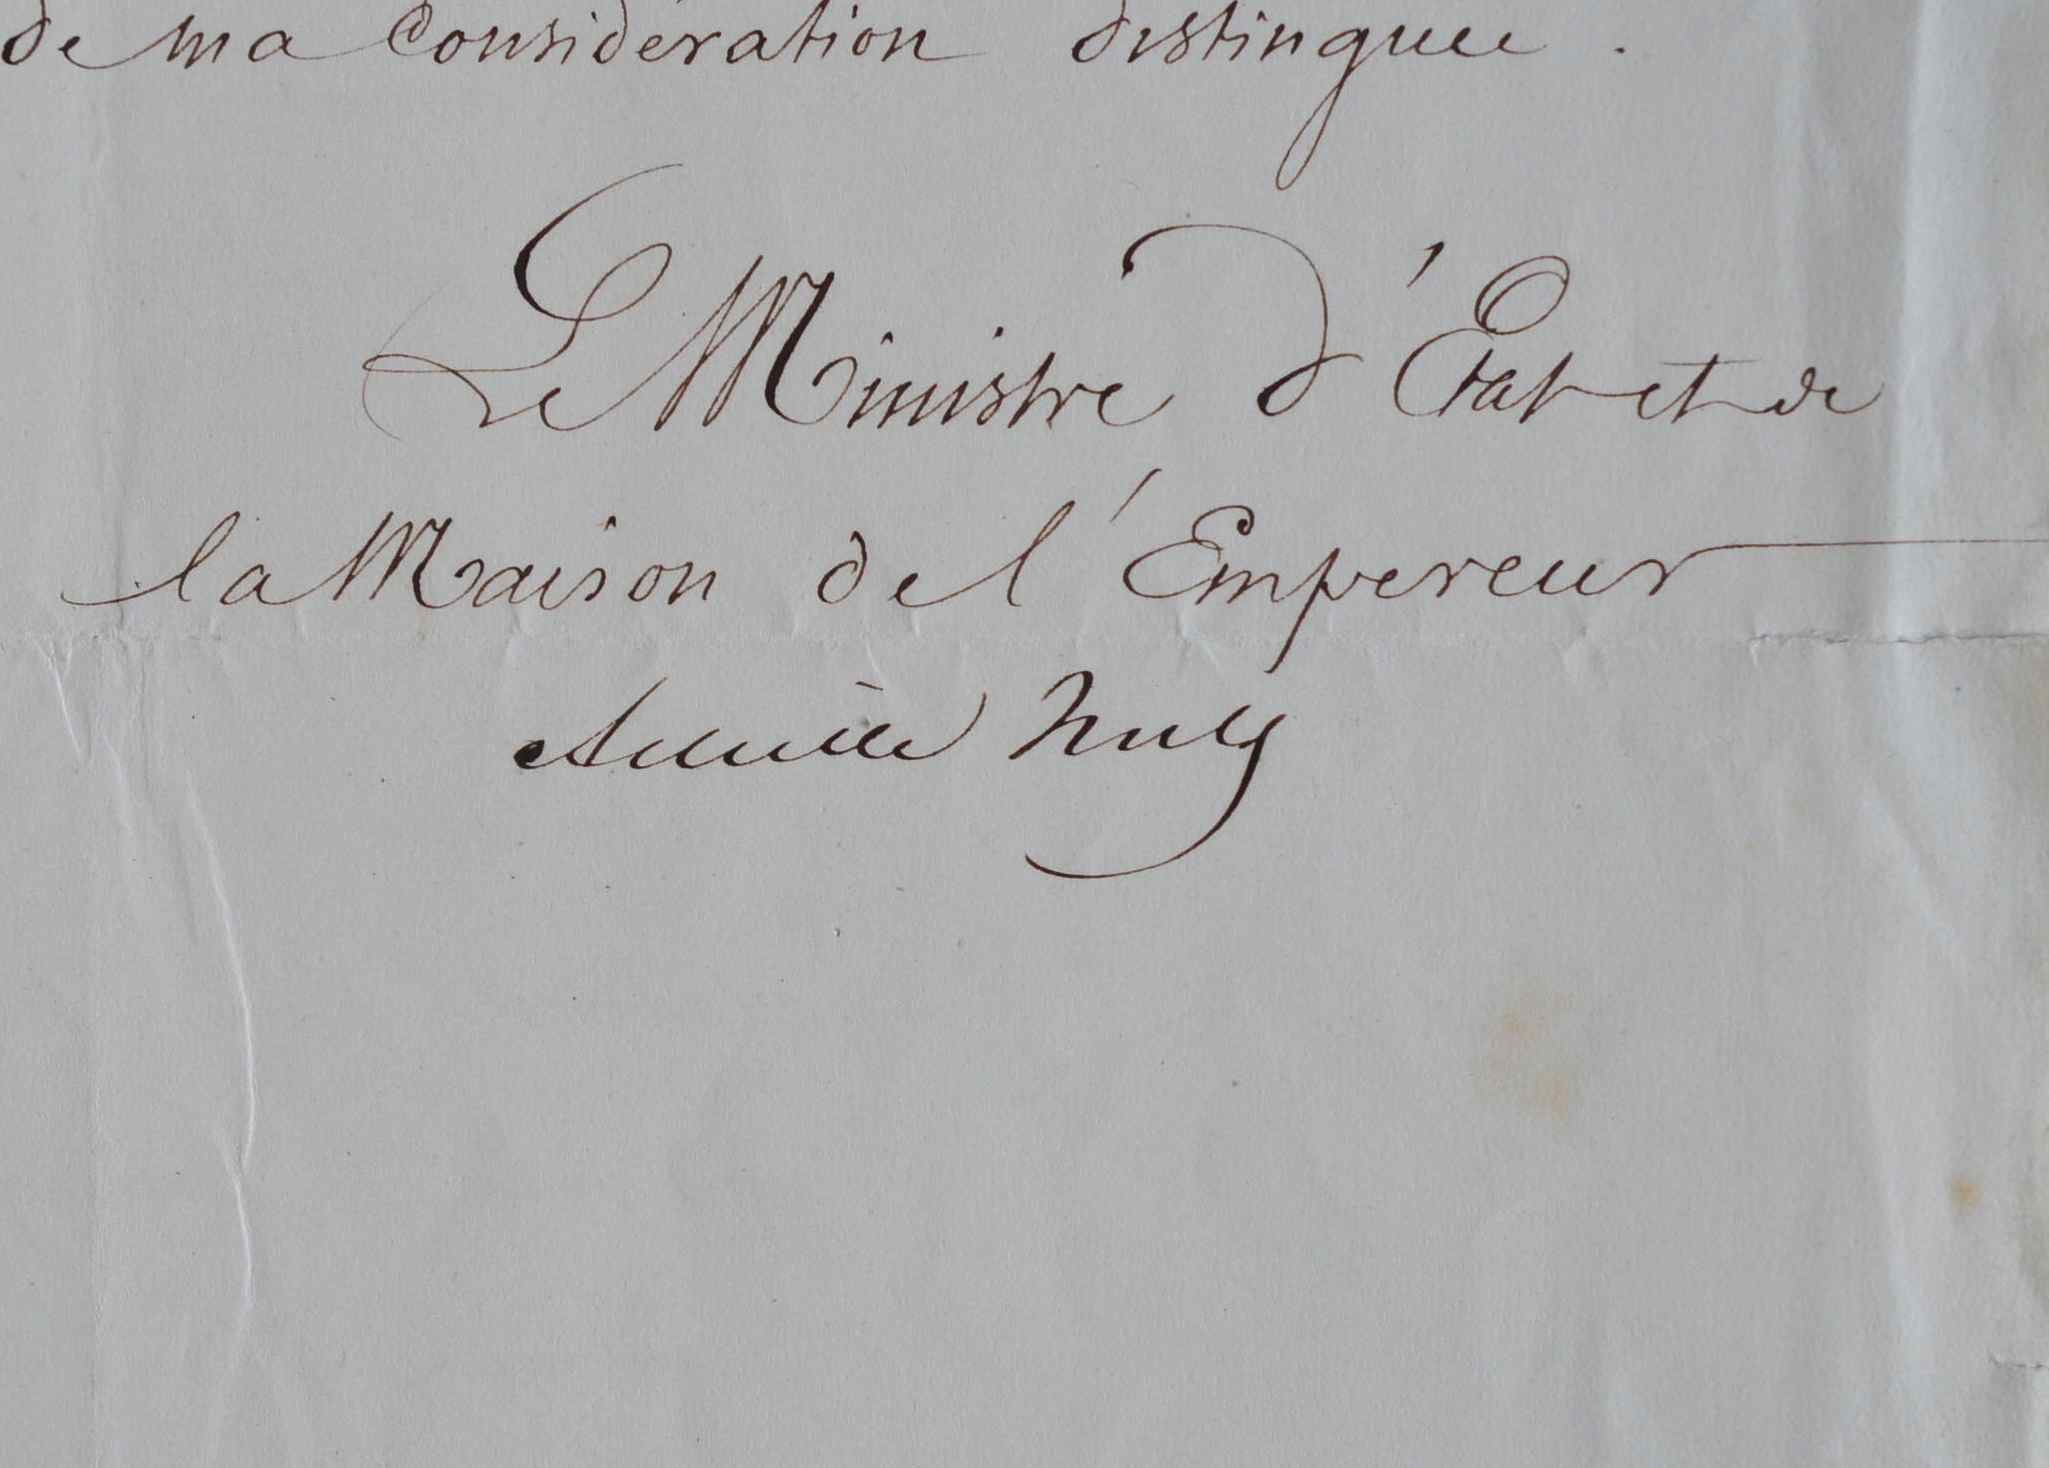 de ma considération distinguée.
Le Ministre d'État et de
la Maison de l'Empereur
Achille Fould